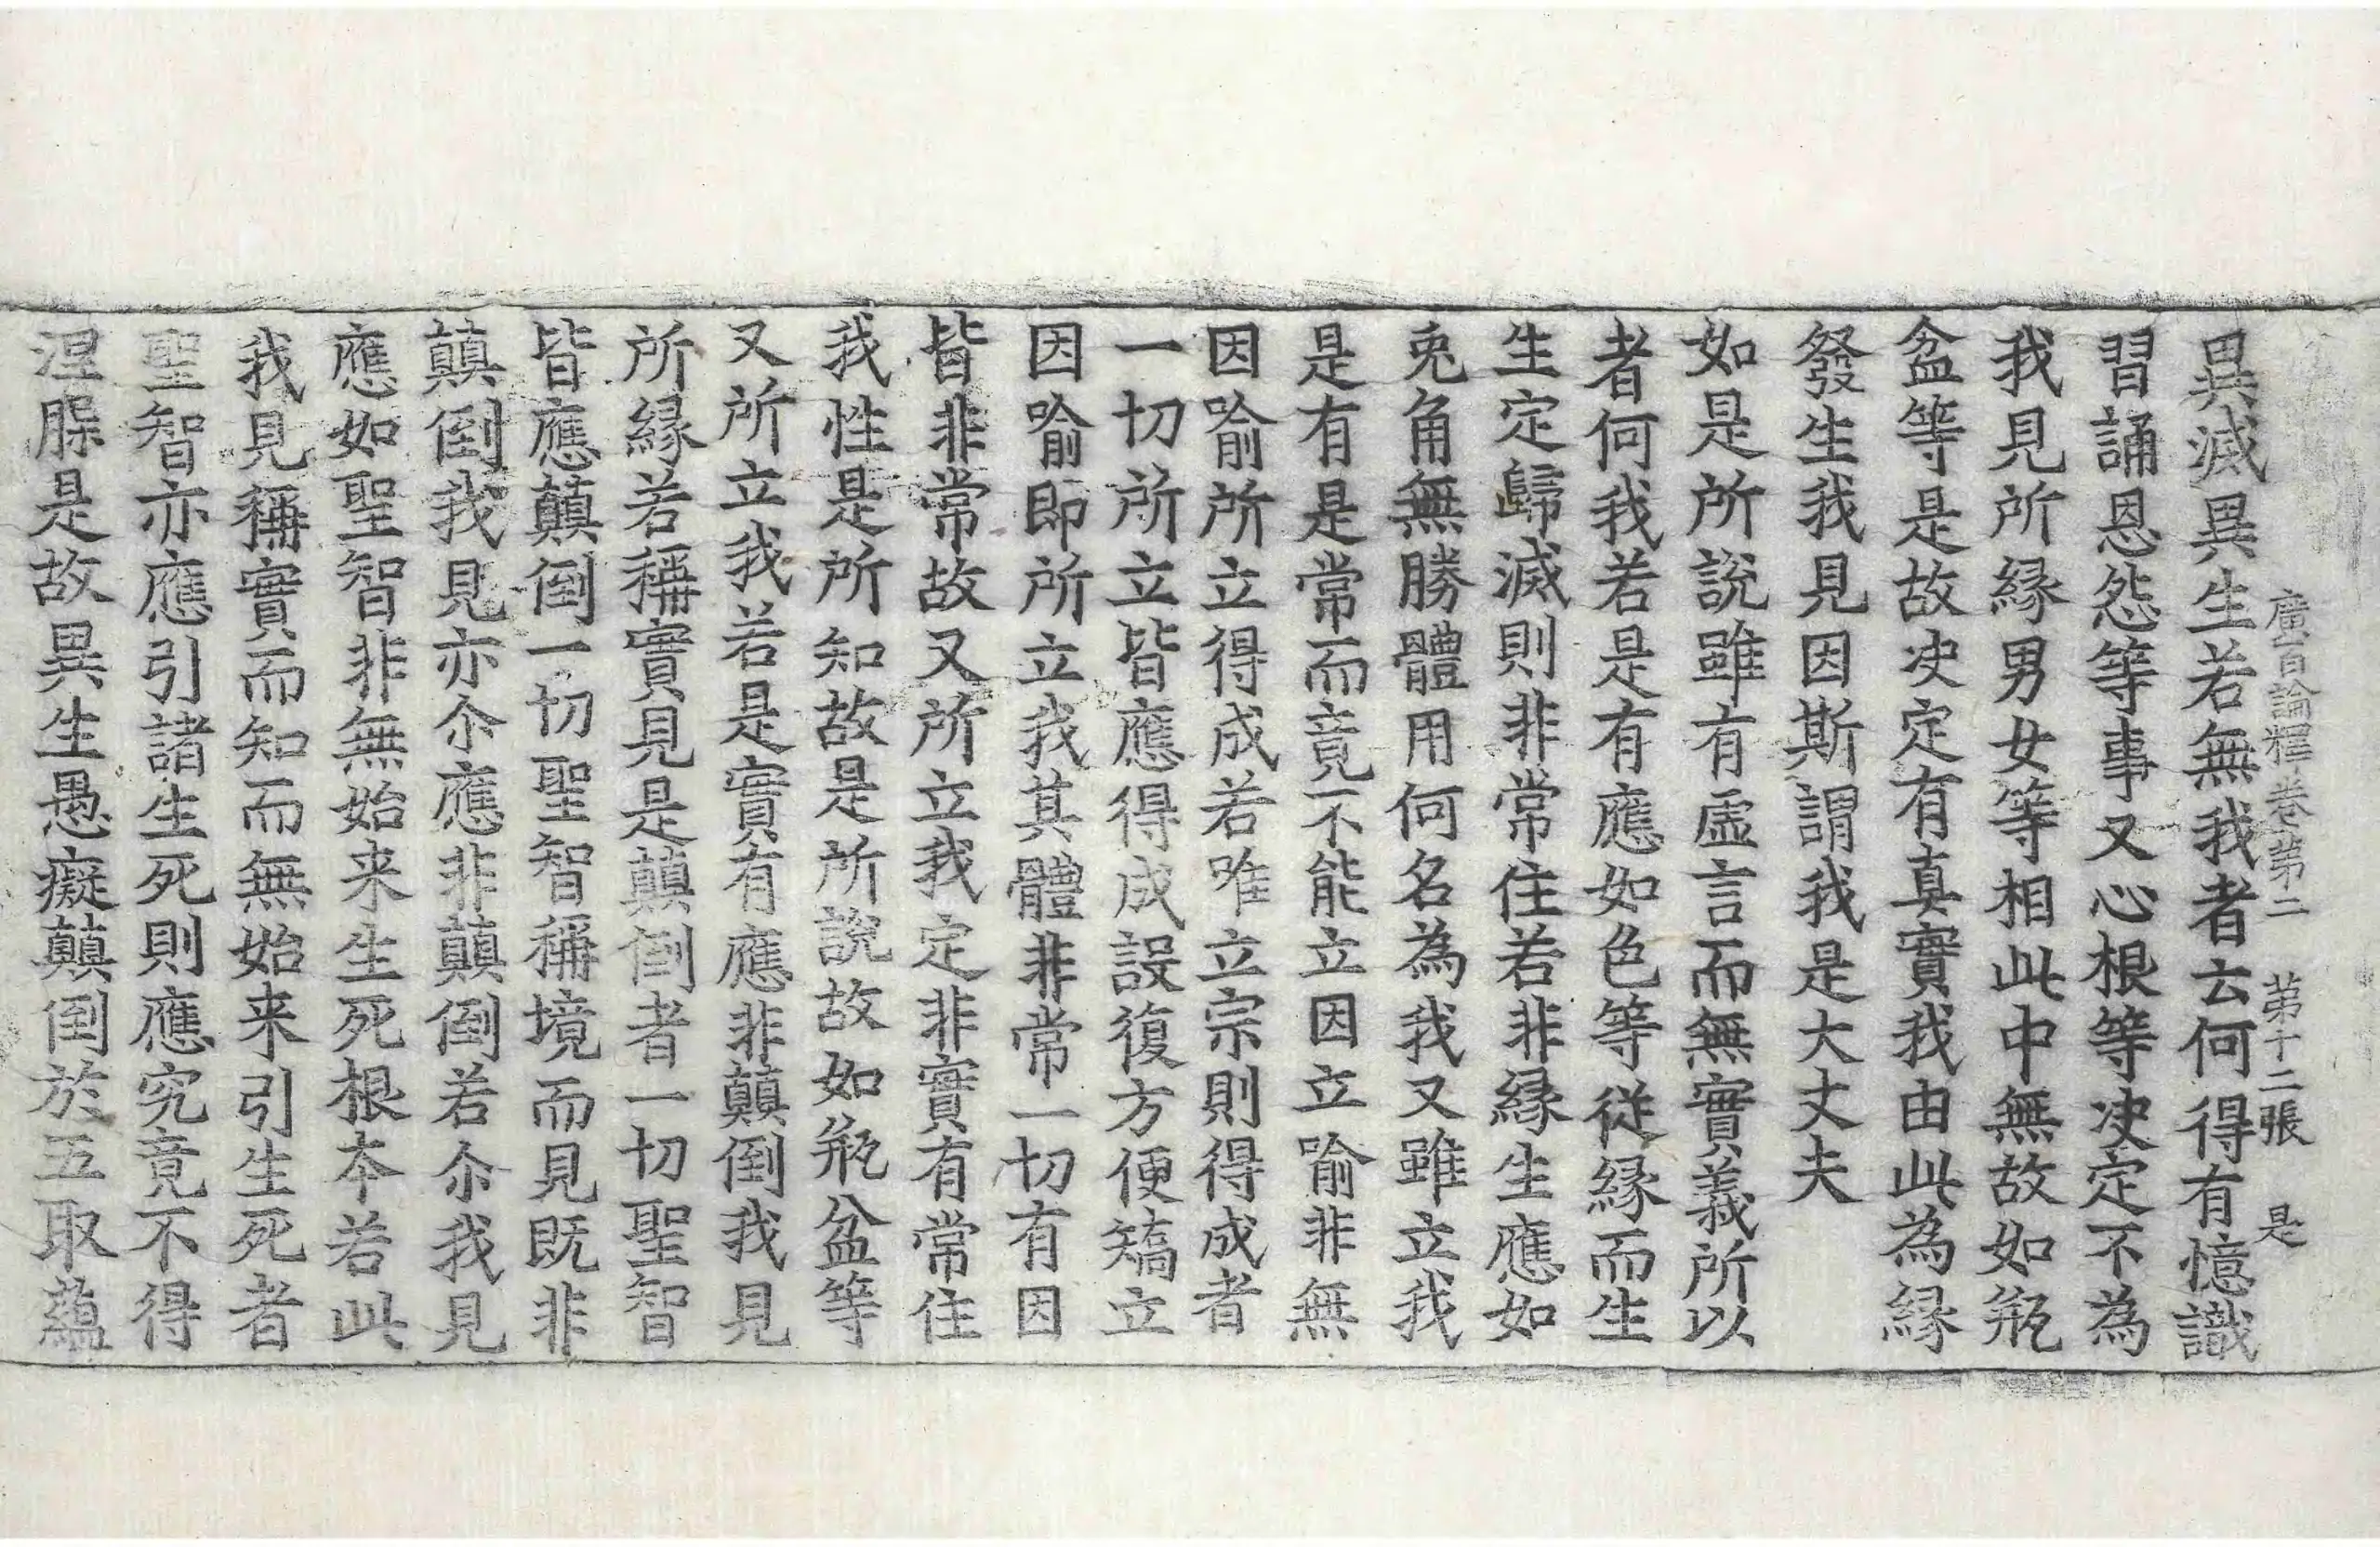 廣百論釋卷第二 第十二張 是
異滅異生若無我者云何得有憶識
習誦恩怨等事又心根等决定不為
我見所緣男女等相此中無故如瓶
盆等是故决定有真實我由此為緣
發生我見因斯謂我是大丈夫
如是所說雖有虛言而無實義所以
者何我若是有應如色等從緣而生
生定歸滅則非常住若非緣生應如
兎角無勝體用何名為我又雖立我
是有是常而竟不能立因立喻非無
因喻所立得成若唯立宗則得成者
一切所立皆應得成設復方便矯立
因喻即所立我其體非常一切有因
皆非常故又所立我定非實有常住
我性是所知故是所說故如瓶盆等
又所立我若是實有應非顛倒我見
所緣若稱實見是顛倒者一切聖智
皆應顛倒一切聖智稱境而見既非
顛倒我見亦尒應非顛倒若尒我見
應如聖智非無始来生死根本若此
我見稱實而知而無始来引生死者
聖智亦應引諸生死則應究竟不得
涅槃是故異生愚癡顛倒於五取蘊